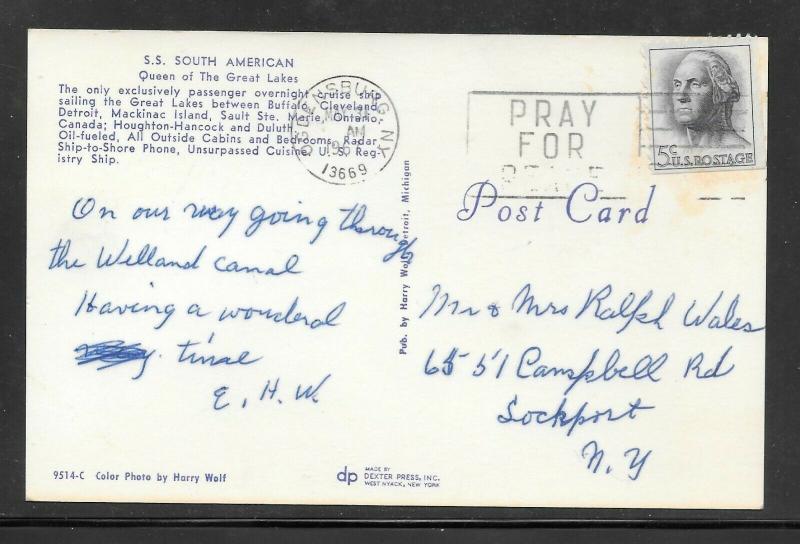 S.S. SOUTH AMERICAN
Queen of The Great Lakes
The only exclusively passenger overnight cruise ship
sailing the Great Lakes between Buffalo, Cleveland,
Detroit, Mackinac Island, Sault Ste. Marie, Ontario,
Canada; Houghton-Hancock and Duluth.
Oil-fueled, All Outside Cabins and Bedrooms, Radar
Ship-to-Shore Phone, Unsurpassed Cuisine, U.S. Reg-
istry Ship.
On our way going through
the Welland canal
Having a wonderal
time
E. H. W.
9514-C Color Photo by Harry Wolf
Pub. by Harry Wolf, Detroit, Michigan
dp
MADE BY
DEXTER PRESS, INC.
WEST NYACK, NEW YORK
OGDENSBURG NY
AM
13669
PRAY
FOR
PEACE
5c
U.S. POSTAGE
Post Card
Mr & Mrs Ralph Wales
6551 Campbell Rd
Lockport
N. Y